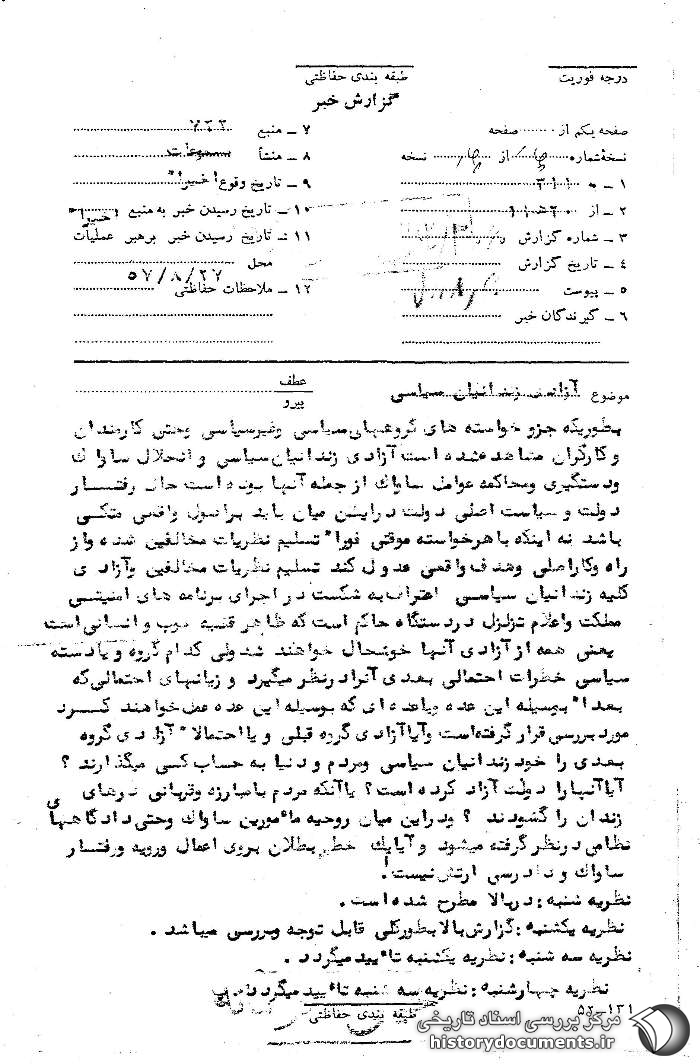 درجه فوریت
طبقه بندی حفاظتی
گزارش خبر
صفحه یکم از ........ صفحه
نسخهٔ شماره چهار از چهار نسخه
۱ ـ به ۳۱۱
۲ ـ از
۳ ـ شماره گزارش
۴ ـ تاریخ گزارش
۵ ـ پیوست
۶ ـ گیرندگان خبر
۷ ـ منبع
۸ ـ منشأ مسموعات
۹ ـ تاریخ وقوع اخیراً
۱۰ ـ تاریخ رسیدن خبر به منبع اخیراً
۱۱ ـ تاریخ رسیدن خبر برهبر عملیات
محل ۵۷/۸/۲۷
۱۲ ـ ملاحظات حفاظتی
موضوع آزادی زندانیان سیاسی
عطف
پیرو
بطوریکه جزو خواسته های گروههای سیاسی وغیرسیاسی وحتی کارمندان
و کارگران مشاهده شده است آزادی زندانیان سیاسی و انحلال ساواک
ودستگیری ومحاکمه عوامل ساواک از جمله آنها بوده است حال رفتار
دولت و سیاست اصلی دولت دراین میان باید براصول واقعی متکی
باشد نه اینکه با هرخواسته موقتی فوراً تسلیم نظریات مخالفین شده واز
راه وکاراصلی وهدف واقعی عدول کند تسلیم نظریات مخالفین وآزادی
کلیه زندانیان سیاسی اعتراف به شکست در اجرای برنامه های امنیتی
مملکت واعلام تزلزل در دستگاه حاکم است که ظاهر قضیه خوب وانسانی است
یعنی همه از آزادی آنها خوشحال خواهند شد ولی کدام گروه و یادسته
سیاسی خطرات احتمالی بعدی آنرا درنظر میگیرد و زیانهای احتمالی که
بعداً بوسیله این عده وباعده ای که بوسیله این عده عمل خواهند کرد
مورد بررسی قرار گرفته است وآیا آزادی گروه قبلی و یا احتمالاً آزادی گروه
بعدی را خود زندانیان سیاسی ومردم و دنیا به حساب کسی میگذارند ؟
آیا آنها را دولت آزاد کرده است ؟ یا آنکه مردم با مبارزه وقربانی درهای
زندان را گشودند ؟ ودراین میان روحیه مأمورین ساواک وحتی دادگاههای
نظامی درنظر گرفته میشود و آیا یک خط بطلان بروی اعمال ورویه ورفتار
ساواک و دادرسی ارتش نیست !
نظریه شنبه : دربالا مطرح شده است .
نظریه یکشنبه : گزارش بالا بطورکلی قابل توجه وبررسی میباشد .
نظریه سه شنبه : نظریه یکشنبه تأیید میگردد .
نظریه چهارشنبه : نظریه سه شنبه تأیید میگردد
طبقه بندی حفاظتی
۵۲-۱۳۱
مرکز بررسی اسناد تاریخی
historydocuments.ir